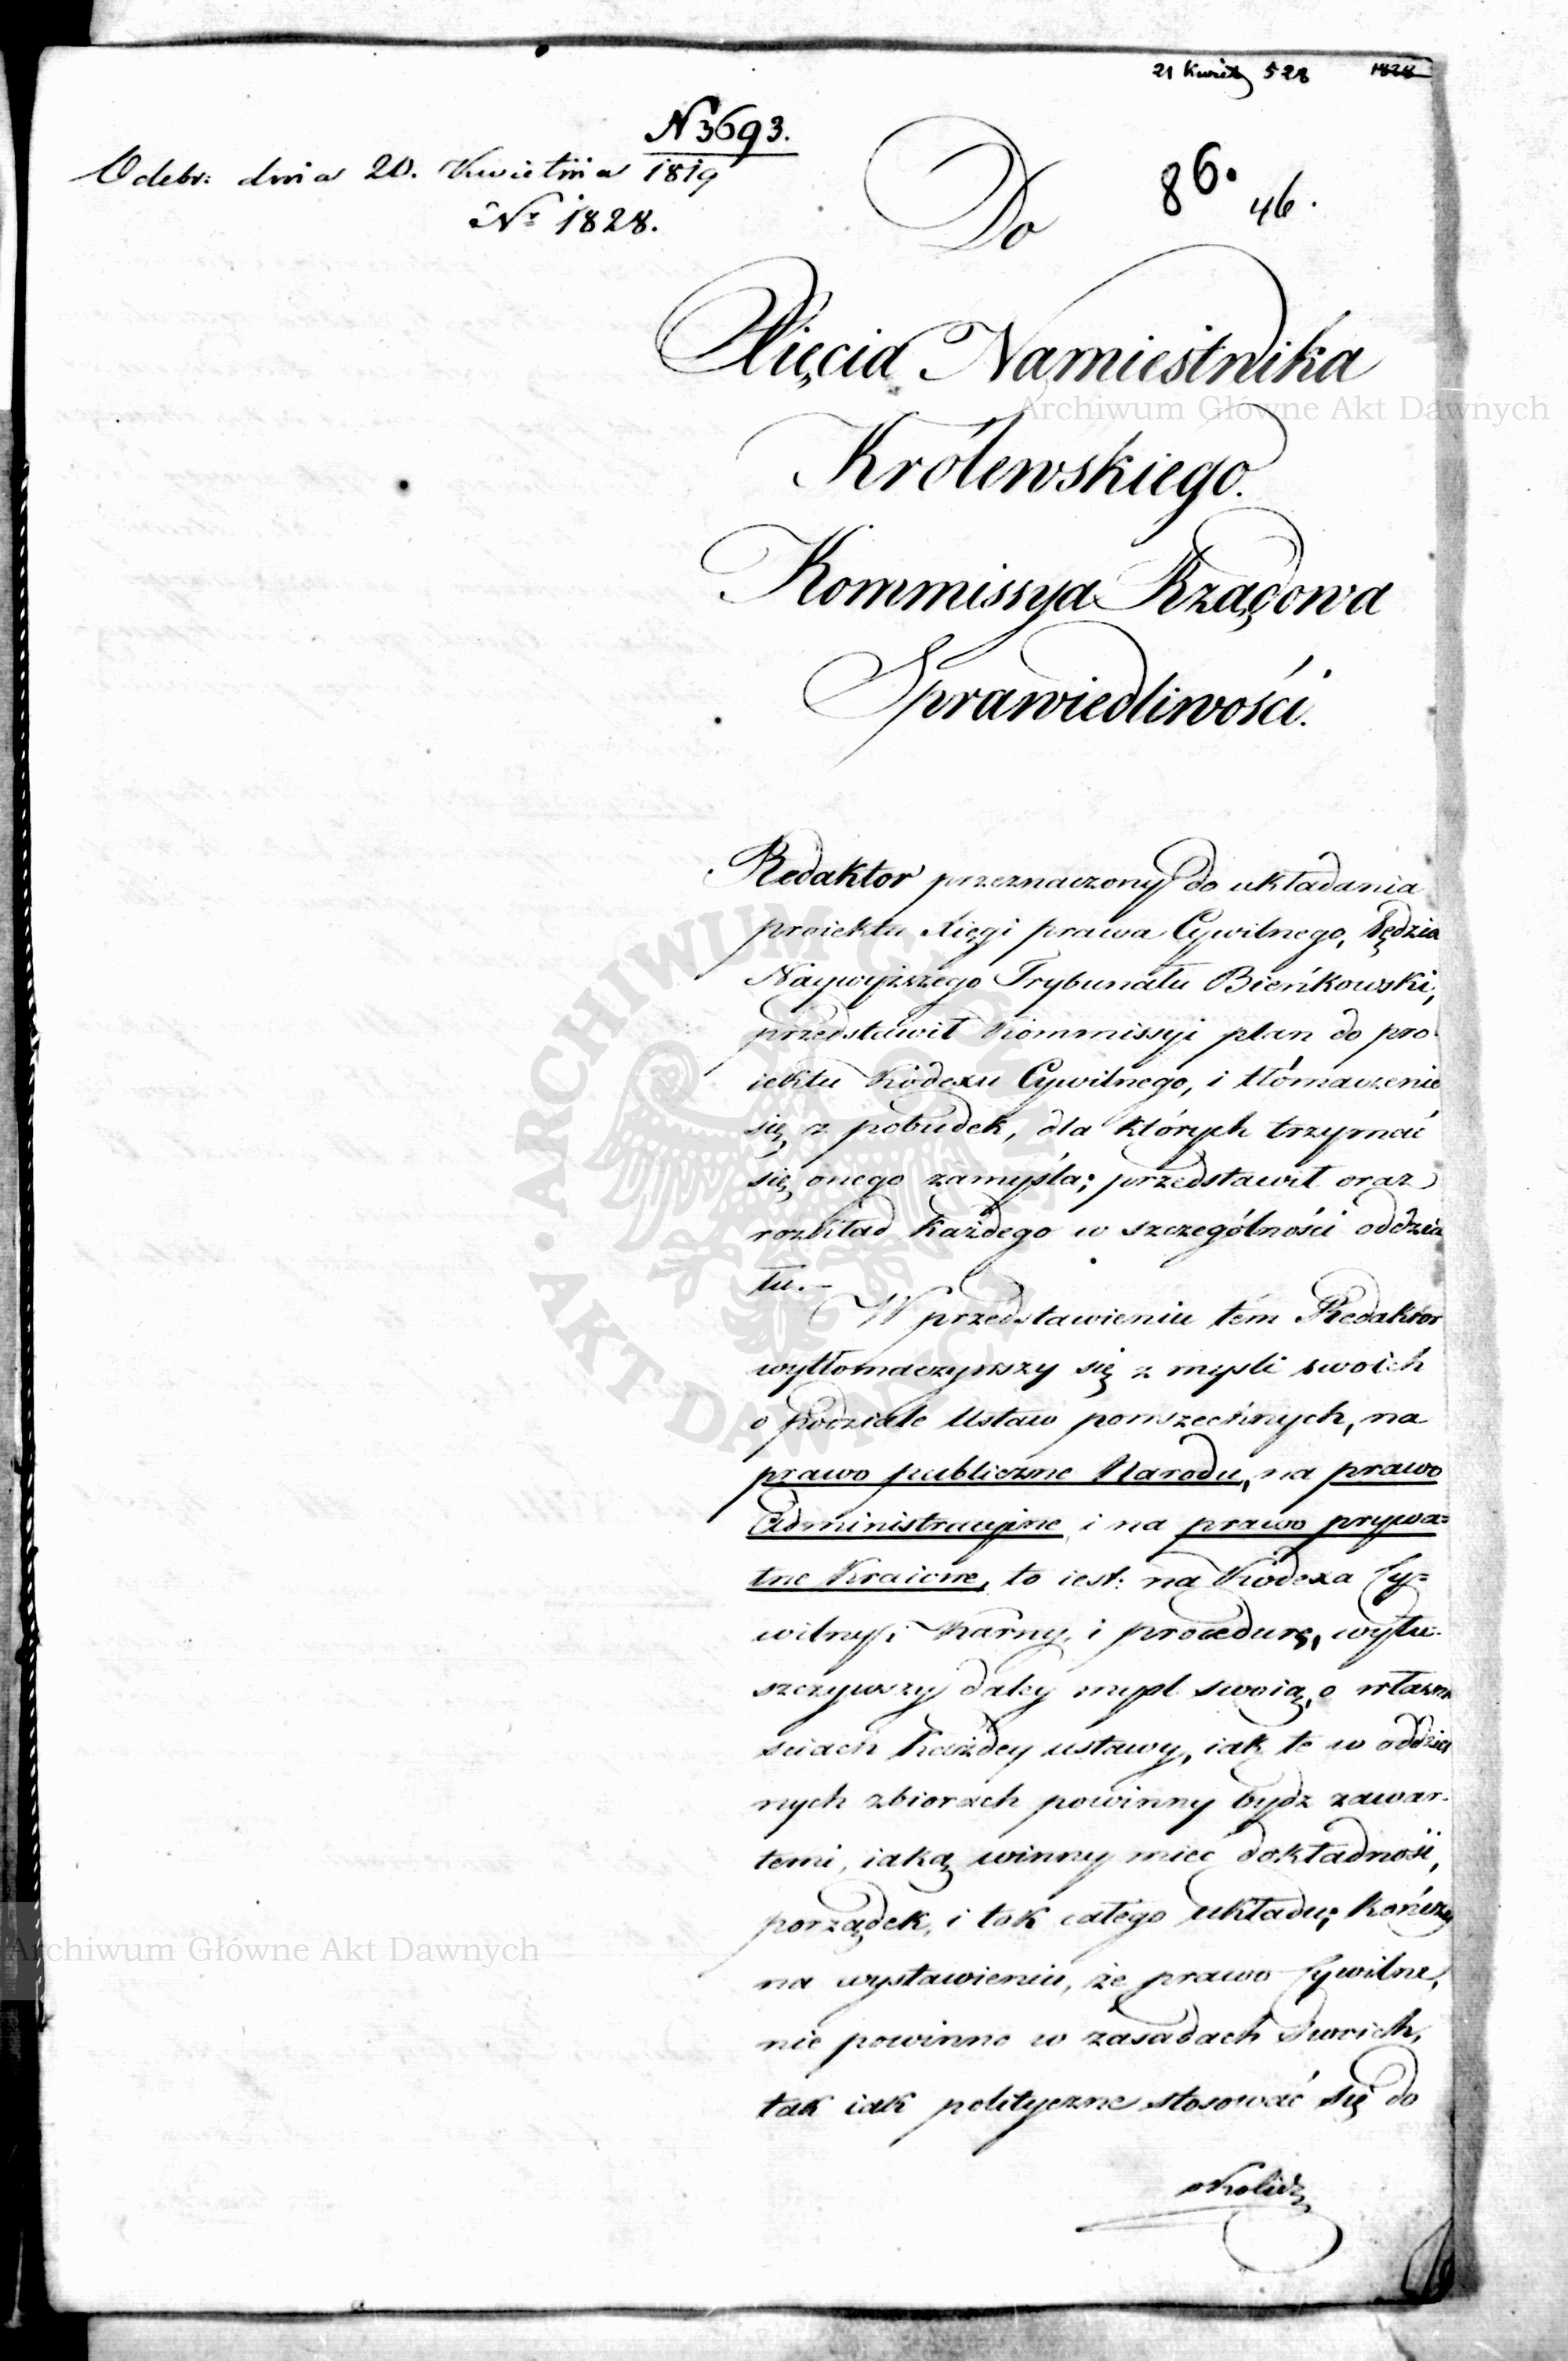 21 Kwiet 528 1828
N 3693.
Odebr: dnia 20. Kwietnia 1819
Nr 1828.
86. 46.
Do
Xięcia Namiestnika
Królewskiego.
Kommissya Rządowa
Sprawiedliwości.
Redaktor przeznaczony do układania
proiektu Xięgi prawa Cywilnego, Sędzia
Naywyższego Trybunału Bieńkowski,
przedstawił Kommissyi plan do pro-
iektu Kodexu Cywilnego, i tłómaczenie
się z pobudek, dla których trzymać
się onego zamyśla; przedstawił oraz
rozkład każdego w szczególności oddzia
łu.-
W przedstawieniu tém Redaktor
wytłomaczywszy się z mysli swoich
o podziale Ustaw powszechnych, na
prawo publiczne Narodu, na prawo
Administracyjne i na prawo prywa=
tne Kraiowe, to iest: na Kodexa Cy=
wilny, Karny, i procedurę, wyłu-
szczywszy daley mysl swoią, o własno
sciach każdey ustawy, iak te w oddziel
nych zbiorach powinny bydz zawar-
temi, iaką winny mieć dokładność,
porządek, i tok całego układu; kończy
na wystawieniu, że prawo Cywilne,
nie powinno w zasadach swoich,
tak iak polityczne stosować się do
okolicz
Archiwum Główne Akt Dawnych
Archiwum Główne Akt Dawnych
ARCHIWUM GŁÓWNE • AKT DAWNYCH •